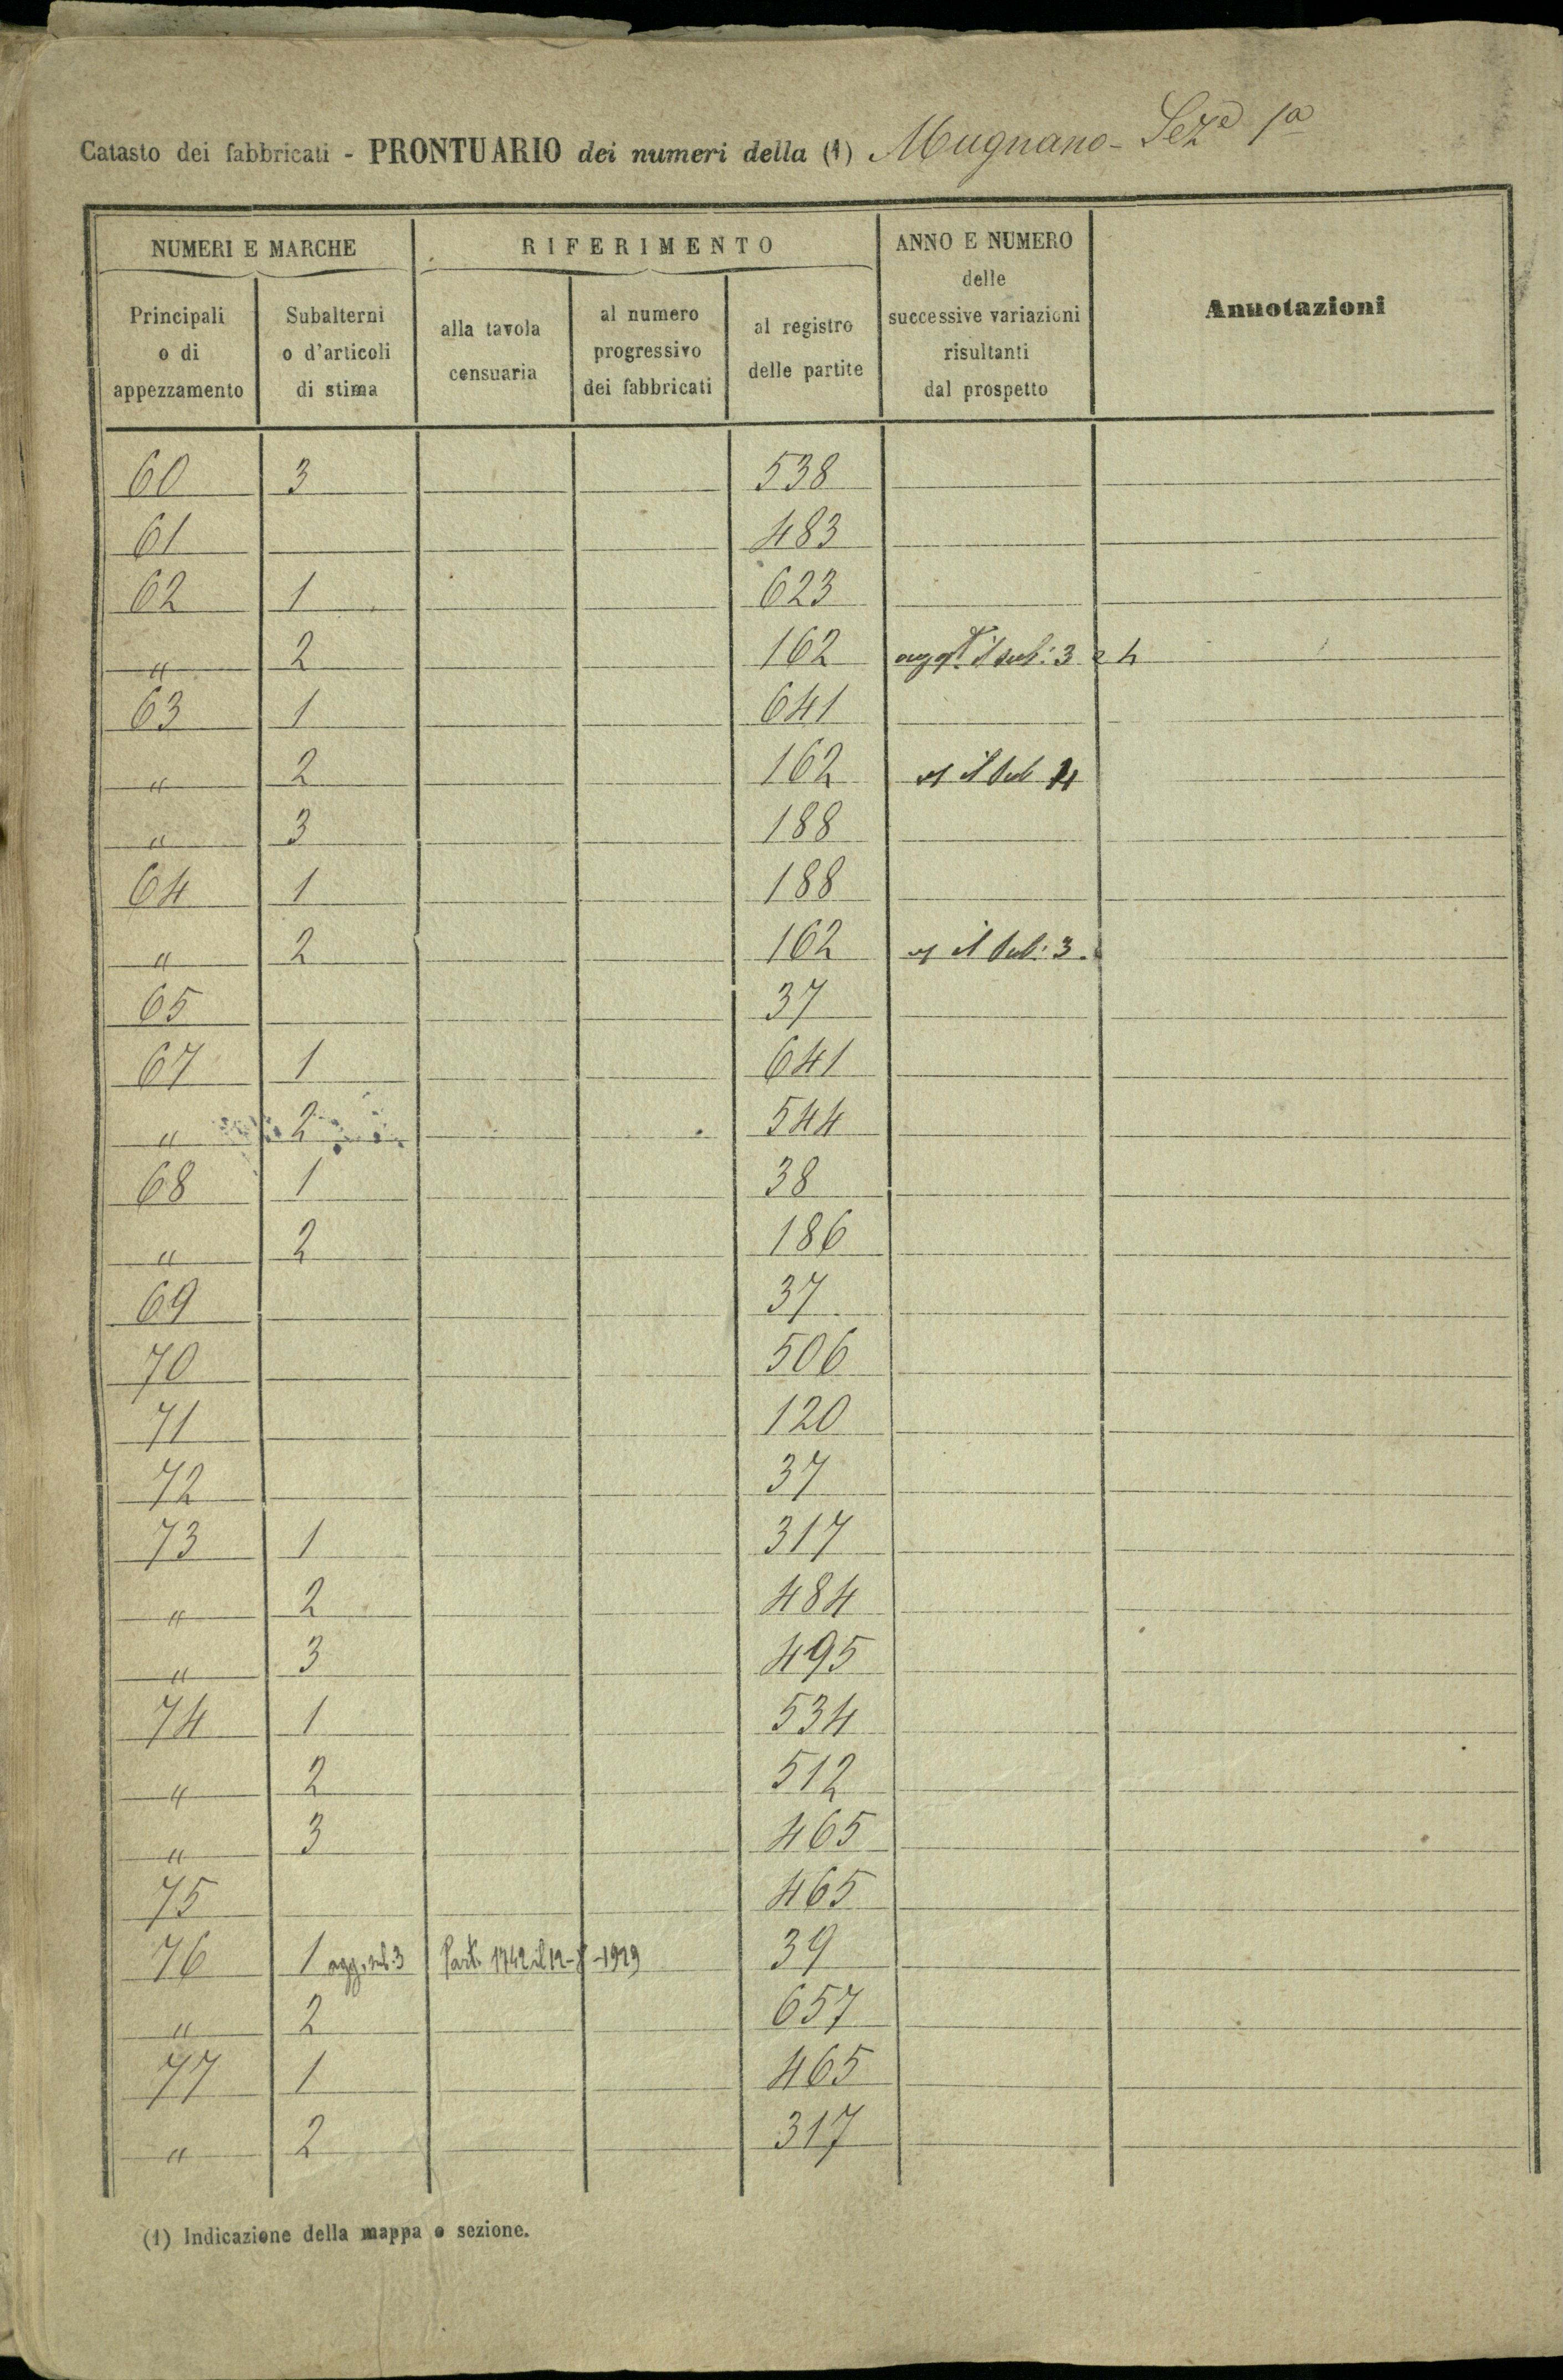 Catasto dei fabbricati - PRONTUARIO dei numeri della (1) Mugnano - Seza 1a
NUMERI E MARCHE RIFERIMENTO ANNO E NUMERO delle successive variazioni risultanti dal prospetto Annotazioni
Principali o di appezzamento Subalterni o d'articoli di stima alla tavola censuaria al numero progressivo dei fabbricati al registro delle partite
60 3 538
61 483
62 1 623
" 2 162 il sub: 3 e 4
63 1 641
" 2 162 il sub 4
" 3 188
64 1 188
" 2 162 il sub: 3.
65 37
67 1 641
" 2 544
68 1 38
" 2 186
69 37
70 506
71 120
72 37
73 1 317
" 2 484
" 3 495
74 1 534
" 2 512
" 3 465
75 465
76 1 agg. sub. 3 Part. 1742 il 12-8-1929 39
" 2 657
77 1 465
" 2 317
(1) Indicazione della mappa o sezione.